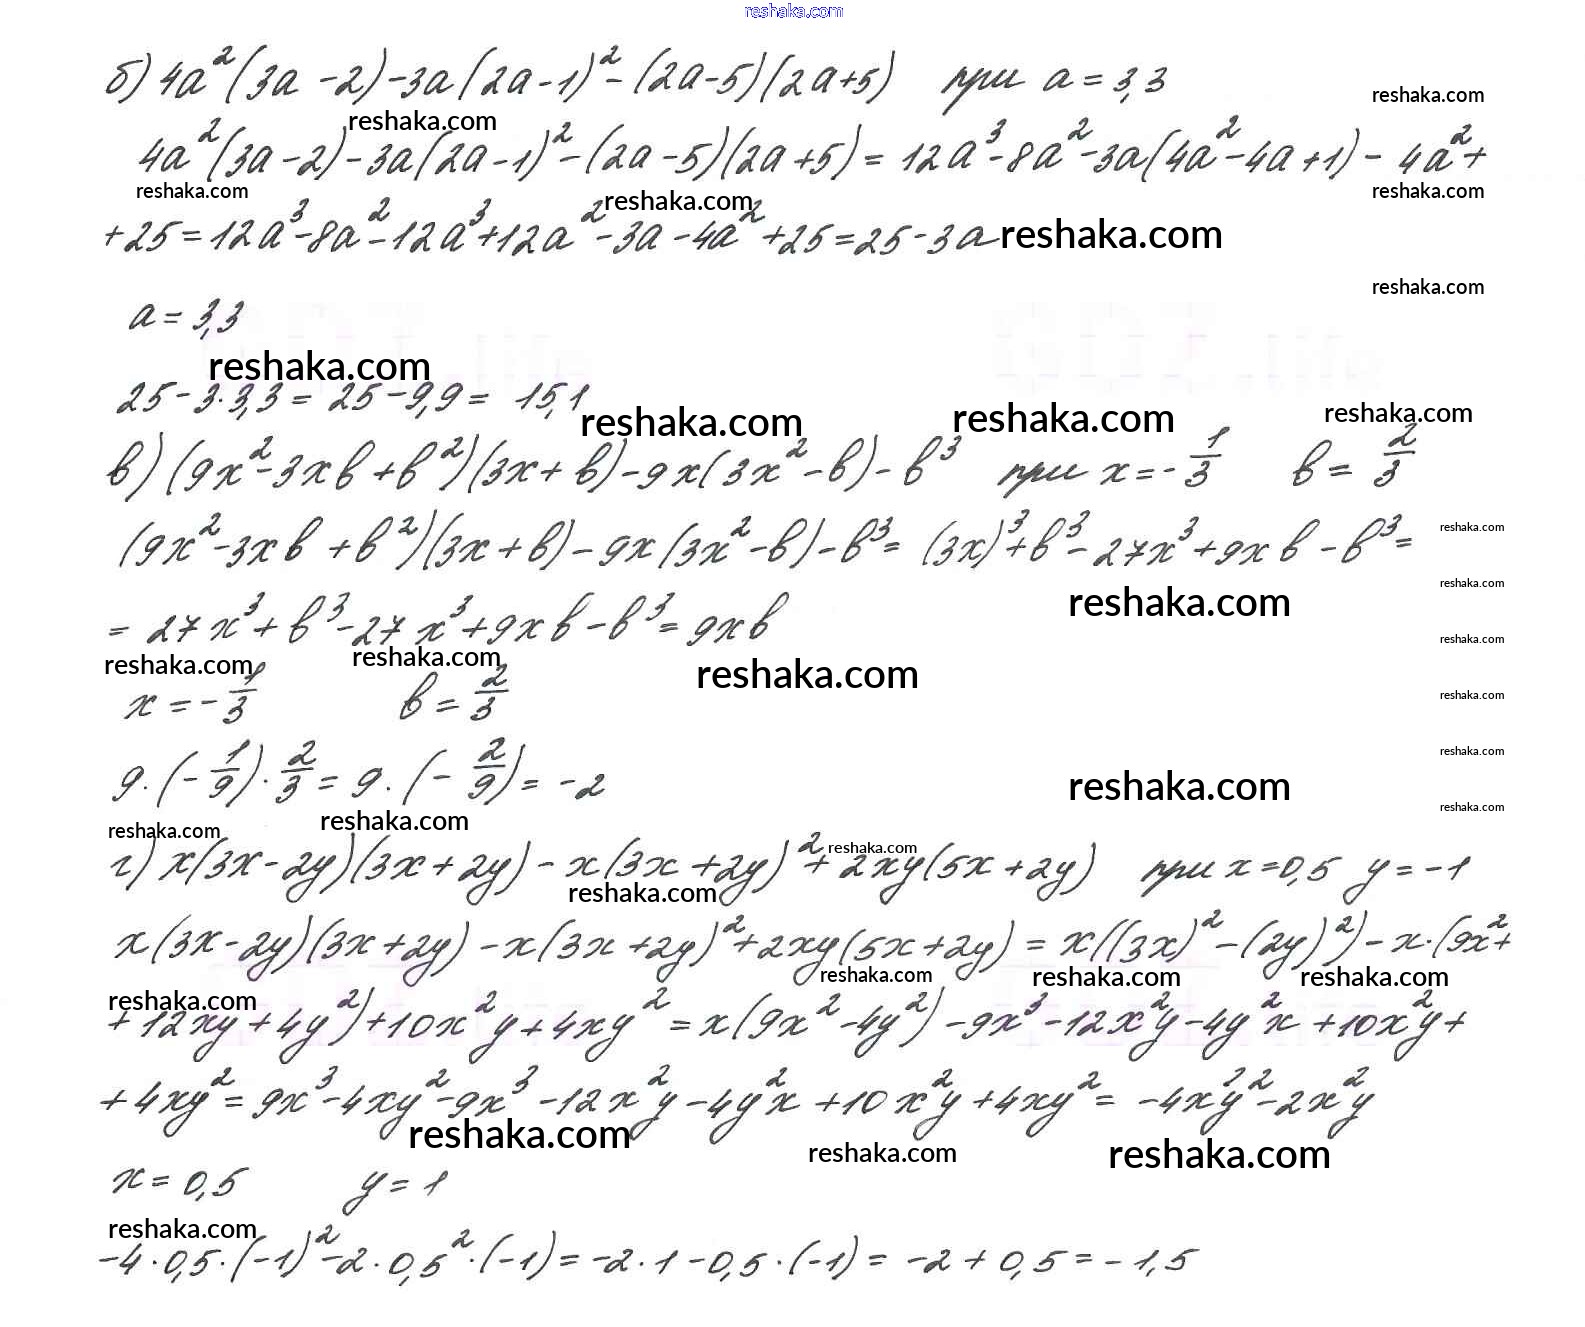 reshaka.com
б) 4a²(3a - 2) - 3a(2a - 1)² - (2a - 5)(2a + 5) при a = 3,3
reshaka.com
reshaka.com
4a²(3a - 2) - 3a(2a - 1)² - (2a - 5)(2a + 5) = 12a³ - 8a² - 3a(4a² - 4a + 1) - 4a² +
reshaka.com reshaka.com reshaka.com
+ 25 = 12a³ - 8a² - 12a³ + 12a² - 3a - 4a² + 25 = 25 - 3a reshaka.com
reshaka.com
a = 3,3
reshaka.com
25 - 3·3,3 = 25 - 9,9 = 15,1
reshaka.com reshaka.com reshaka.com
в) (9x² - 3xb + b²)(3x + b) - 9x(3x² - b) - b³ при x = -1/3 b = 2/3
reshaka.com
(9x² - 3xb + b²)(3x + b) - 9x(3x² - b) - b³ = (3x)³ + b³ - 27x³ + 9xb - b³ =
reshaka.com
reshaka.com
= 27x³ + b³ - 27x³ + 9xb - b³ = 9xb
reshaka.com
reshaka.com reshaka.com reshaka.com
x = -1/3 b = 2/3
reshaka.com
reshaka.com
9·(-1/9)·2/3 = 9·(-2/9) = -2
reshaka.com
reshaka.com
reshaka.com reshaka.com
г) x(3x - 2y)(3x + 2y) - x(3x + 2y)² + 2xy(5x + 2y) при x = 0,5 y = -1
reshaka.com
reshaka.com
x(3x - 2y)(3x + 2y) - x(3x + 2y)² + 2xy(5x + 2y) = x((3x)² - (2y)²) - x·(9x² +
reshaka.com reshaka.com reshaka.com
reshaka.com
+ 12xy + 4y²) + 10x²y + 4xy² = x(9x² - 4y²) - 9x³ - 12x²y - 4y²x + 10x²y +
+ 4xy² = 9x³ - 4xy² - 9x³ - 12x²y - 4y²x + 10x²y + 4xy² = -4xy²² - 2x²y
reshaka.com reshaka.com reshaka.com
x = 0,5 y = 1
reshaka.com
-4·0,5·(-1)² - 2·0,5²·(-1) = -2·1 - 0,5·(-1) = -2 + 0,5 = -1,5